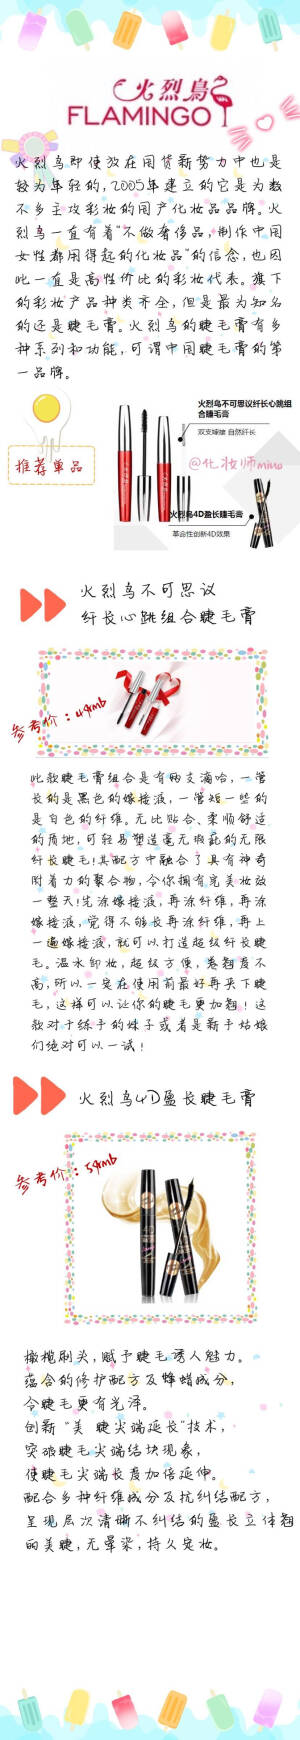 火烈鳥
FLAMINGO
火烈鸟即使放在国货新势力中也是
较为年轻的,2005年建立的它是为数
不多主攻彩妆的国产化妆品品牌。火
烈鸟一直有着“不做奢侈品,制作中国
女性都用得起的化妆品”的信念,也因
此一直是高性价比的彩妆代表。旗下
的彩妆产品种类齐全,但是最为知名
的还是睫毛膏。火烈鸟的睫毛膏有多
种系列和功能,可谓中国睫毛膏的第
一品牌。
火烈鸟不可思议纤长心跳组
合睫毛膏
双支嫁接 自然纤长
推荐單品
@化妆师mina
火烈鸟4D盈长睫毛膏
革命性创新4D效果
火烈鸟不可思议
纤长心跳组合睫毛膏
参考价:49rmb
此款睫毛膏组合是有两支滴哈,一管
长的是黑色的嫁接液,一管短一些的
是白色的纤维。无比贴合、柔顺舒适
的质地,可轻易塑造毫无瑕疵的无限
纤长睫毛!其配方中融合了具有神奇
附着力的聚合物,令你拥有完美妆效
一整天!先涂嫁接液,再涂纤维,再涂
嫁接液,觉得不够长再涂纤维,再上
一遍嫁接液,就可以打造超级纤长睫
毛。温水卸妆,超级方便,卷翘度不
高,所以一定在使用前最好再夹下睫
毛,这样可以让你的睫毛更加翘!这
款对于练手的妹子或者是新手姑娘
们绝对可以一试!
火烈鸟4D盈长睫毛膏
参考价:59rmb
橄榄刷头,赋予睫毛诱人魅力。
蕴含的修护配方及蜂蜡成分,
令睫毛更有光泽。
创新“美 睫尖端延长”技术,
突破睫毛尖端结块现象,
使睫毛尖端长度加倍延伸。
配合多种纤维成分及抗纠结配方,
呈现层次清晰不纠结的盈长立体翘
的美睫,无晕染,持久定妆。